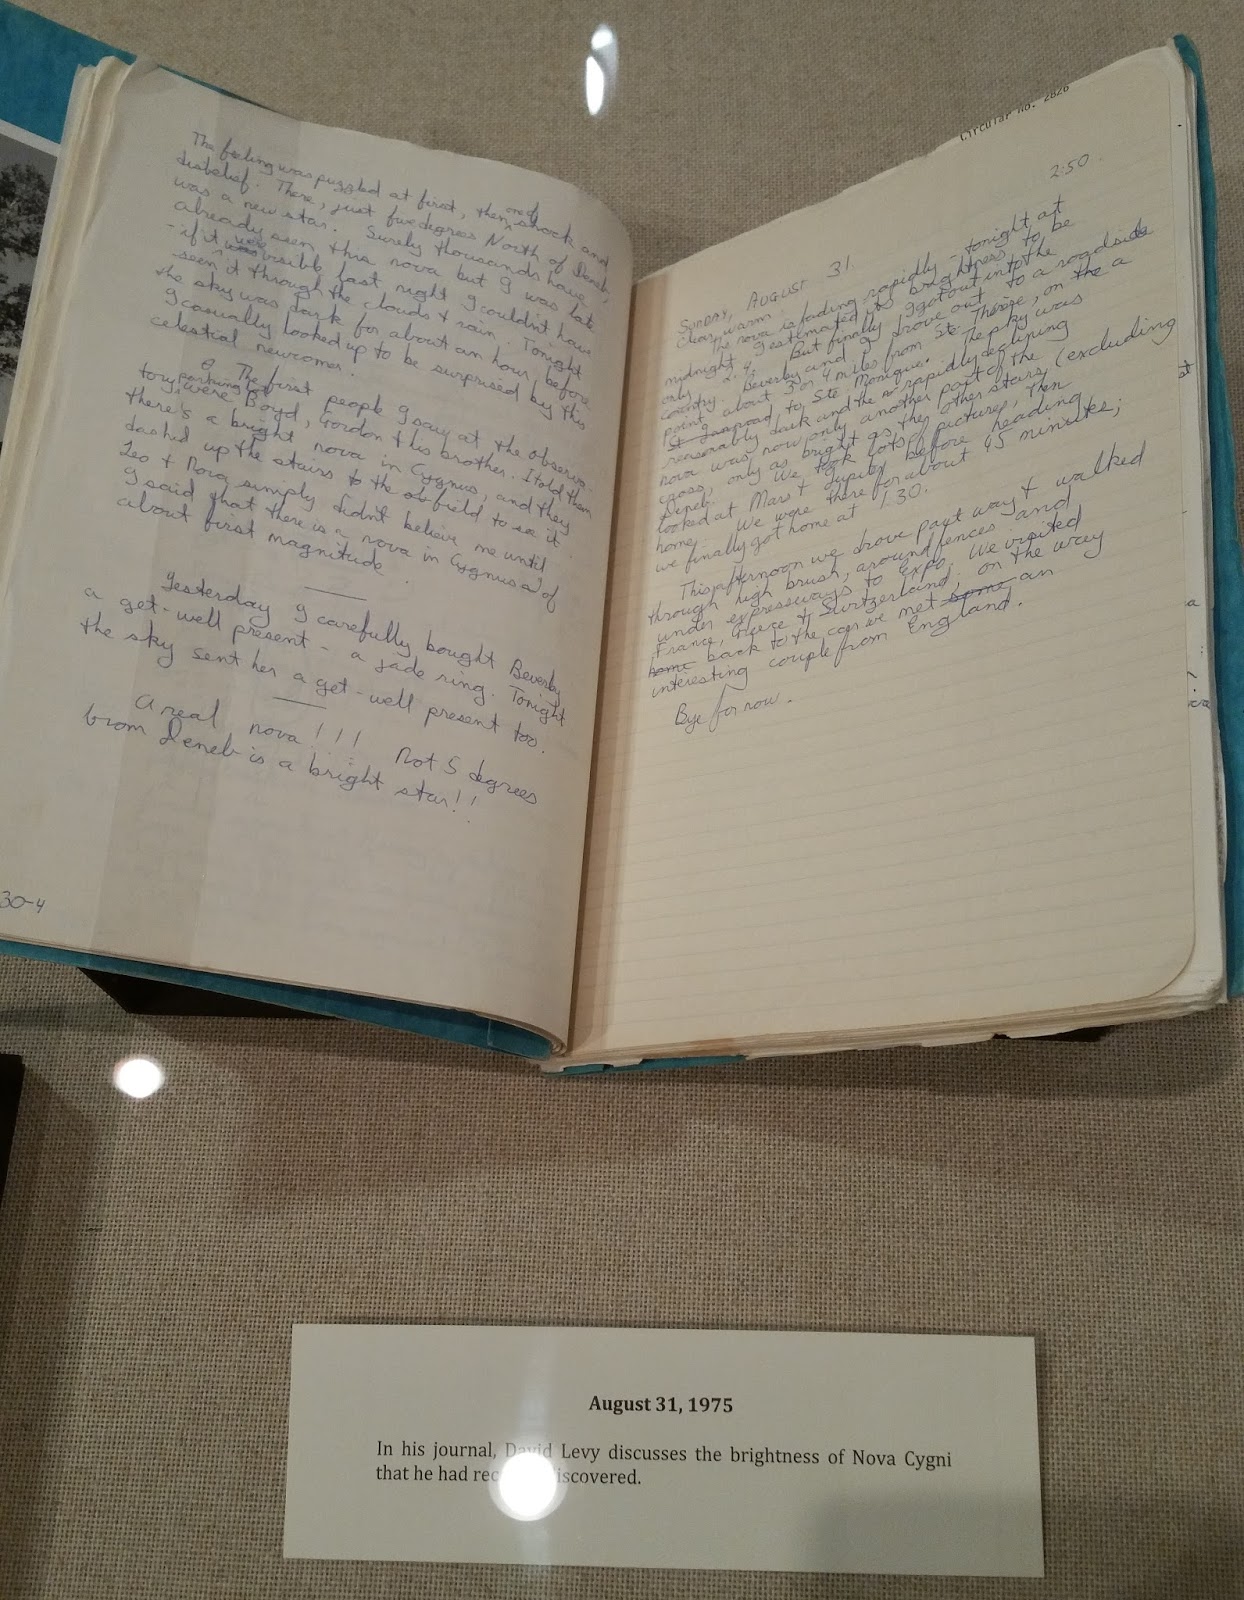 The feeling was puzzled at first, then one of shock and
disbelief. There, just five degrees North of Deneb,
was a new star. Surely thousands have
already seen this nova but I was late
- if it was visible last night I couldn't have
seen it through the clouds & rain. Tonight
the sky was dark for about an hour before
I casually looked up to be surprised by this
celestial newcomer.
The first people I saw at the observa-
tory parking lot were Boyd, Gordon & his brother. I told them
there's a bright nova in Cygnus, and they
dashed up the stairs to the field to see it.
Leo & Nova simply didn't believe me until
I said that there is a nova in Cygnus of
about first magnitude.
Yesterday I carefully bought Beverly
a get-well present - a jade ring. Tonight
the sky sent her a get-well present too.
A real nova!!! Not 5 degrees
from Deneb is a bright star!!
30-4
Circular no. 2826
2:50.
SUNDAY, AUGUST 31.
Clear, warm.
The nova is fading rapidly - tonight at
midnight I estimated its brightness to be
only 2.4. But finally I got out into the
country. Beverly and I drove out to a roadside
point about 3 or 4 miles from Ste. Thérèse, on the
road to Ste Monique. The sky was
reasonably dark and the rapidly declining
nova was now only another part of the
cross, only as bright as the other stars (excluding
Deneb. We took lots of pictures, then
looked at Mars & Jupiter before heading
home. We were there for about 45 minutes;
we finally got home at 1:30.
This afternoon we drove part way & walked
through high brush, around fences and
under expressways to Expo. We visited
France, Greece & Switzerland, on the way
home back to the car we met some an
interesting couple from England.
Bye for now.
August 31, 1975
In his journal, David Levy discusses the brightness of Nova Cygni
that he had discovered.